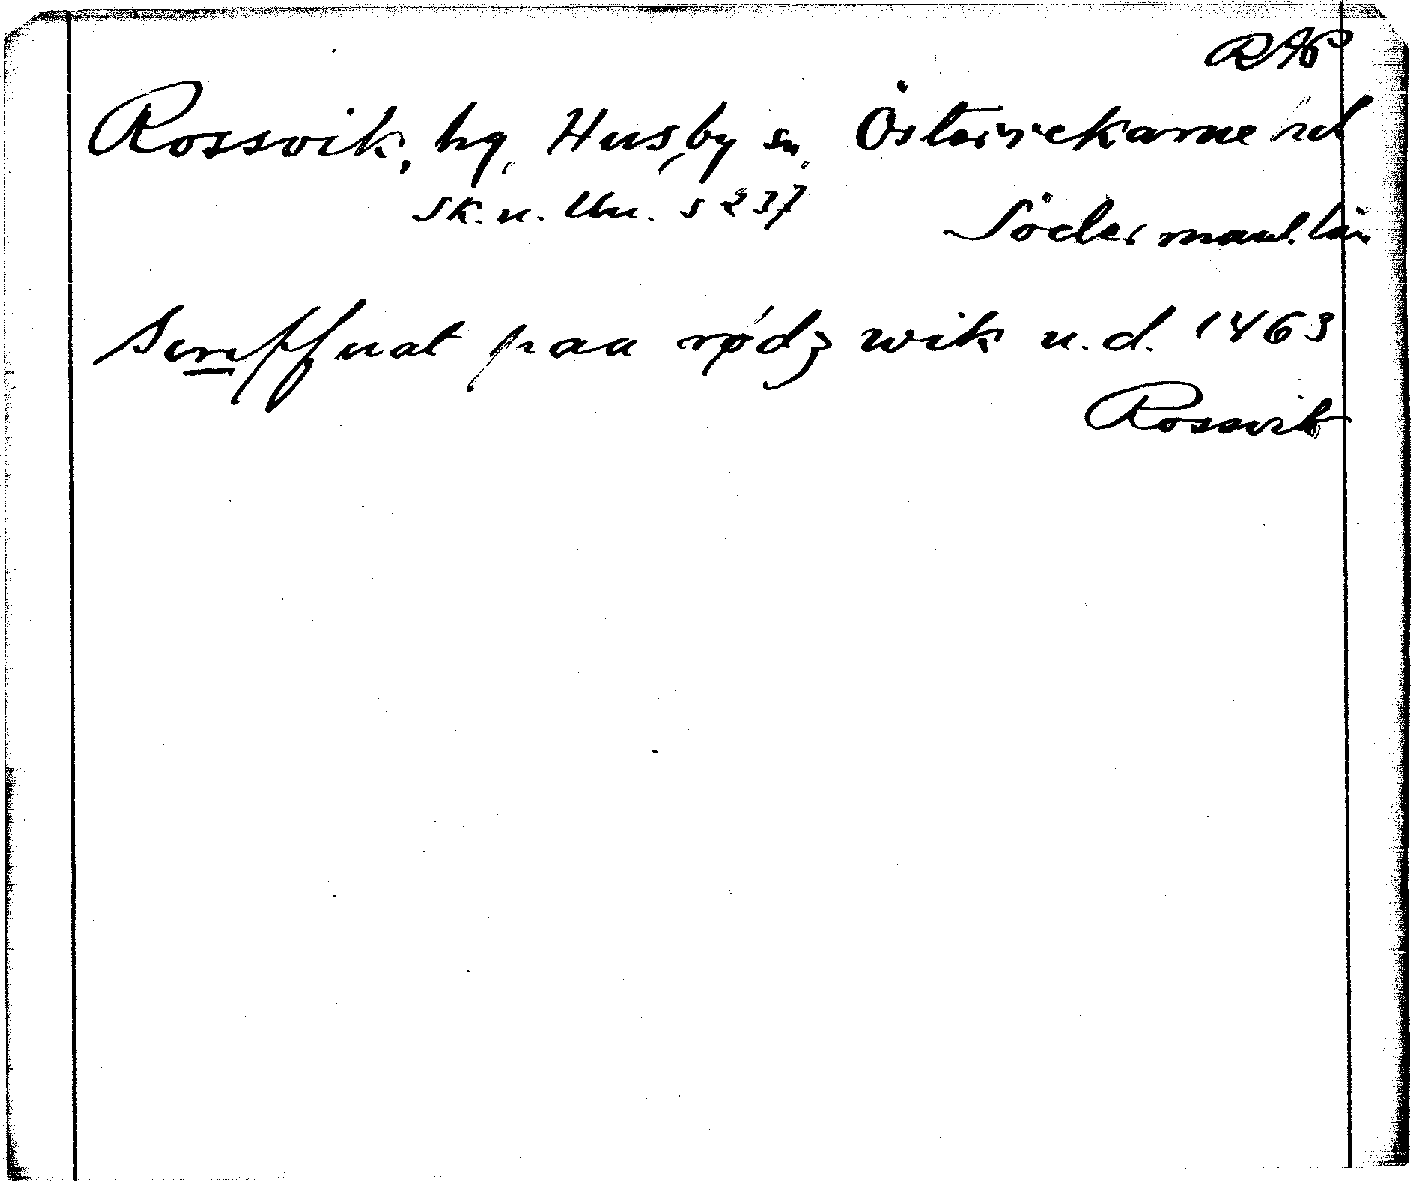 RAP
Rossvik, hg, Husby sn, Österrekarne hd
Sk. u. Unr. s 237
Södermanl. län
paa rødz wik u.d. 1463
Rossvik